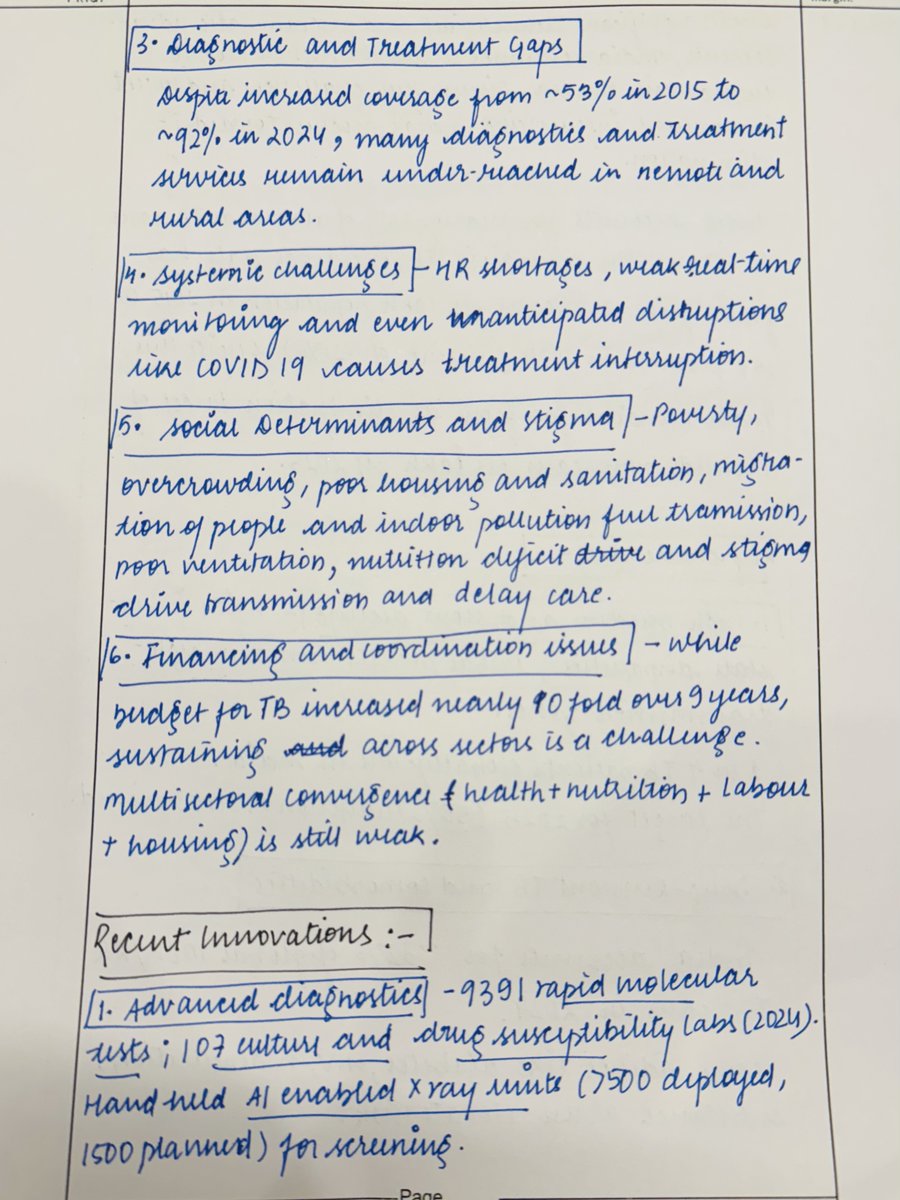 3. Diagnostic and Treatment Gaps
Despite increased coverage from ~53% in 2015 to
~92% in 2024, many diagnostics and treatment
services remain under-reached in remote and
rural areas.
4. Systemic challenges - HR shortages, weak real-time
monitoring and even unanticipated disruptions
like COVID 19 causes treatment interruption.
5. Social Determinants and Stigma - Poverty,
overcrowding, poor housing and sanitation, migra-
tion of people and indoor pollution fuel tramission,
poor ventitation, nutrition deficit drive and stigma
drive transmission and delay care.
6. Financing and coordination issues - While
budget for TB increased nearly 10 fold over 9 years,
sustaining and across sectors is a challenge.
Multisectoral convergence (health + nutrition + Labour
+ housing) is still weak.
Recent Innovations :-
1. Advanced diagnostics - 9391 rapid molecular
tests; 107 culture and drug susceptibility labs (2024).
Hand held AI enabled X ray units (>500 deployed,
1500 planned) for screening.
Page